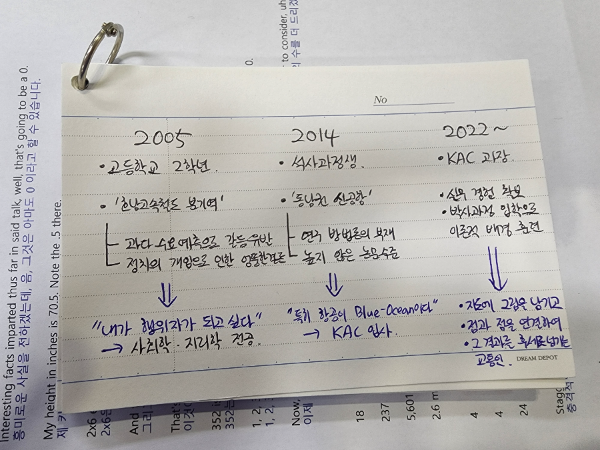 No
2005
• 고등학교 2학년.
• '호남고속철도 분기역'
과다 수요예측으로 갈등유발
정치의 개입으로 인한 엉뚱한결론
"내가 행위자가 되고 싶다"
→ 사회학·지리학 전공.
2014
• 석사과정생.
• '동남권 신공항'
연구 방법론의 부재
높지 않은 논문수준
"특히 항공이 Blue-Ocean이다"
→ KAC 입사.
2022~
• KAC 과장.
• 실무 경험 확보
• 박사과정 입학으로
이론적 배경 충전
• 지도에 그림을 남기고
• 점과 점을 연결하여
• 그 결과를 후세로 남기는
교통인.
DREAM DEPOT
Interesting facts imparted thus far in said talk, well, that's going to be a 0.
흥미로운 사실을 전하겠는데, 음, 그것은 아마도 0 이라고 할 수 있습니다.
My height in inches is 70.5. Note the .5 there.
제 키
2x6
2x6
And
그리
That's
이것
352
352
1, 2,
1, 2,
Now,
이제
to consider, uh
수를 더 드리겠
0.
18
237
5,601
2.6 m
4
4
24
Stagg
충격적